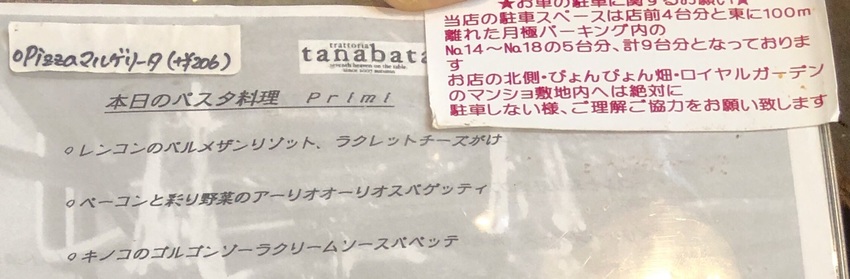 ○Pizzaマルゲリータ(+¥206)
trattoria
tanabata
seventh heaven on the table.
since 2007 autumn
本日のパスタ料理 Primi
○レンコンのパルメザンリゾット、ラクレットチーズがけ
○ベーコンと彩り野菜のアーリオオーリオスパゲッティ
○キノコのゴルゴンゾーラクリームソースパペッテ
★お車の駐車に関するお願い★
当店の駐車スペースは店前4台分と東に100m
離れた月極パーキング内の
No.14～No.18の5台分、計9台分となっておりま
す
お店の北側・ぴょんぴょん畑・ロイヤルガーデン
のマンショ敷地内へは絶対に
駐車しない様、ご理解ご協力をお願い致します